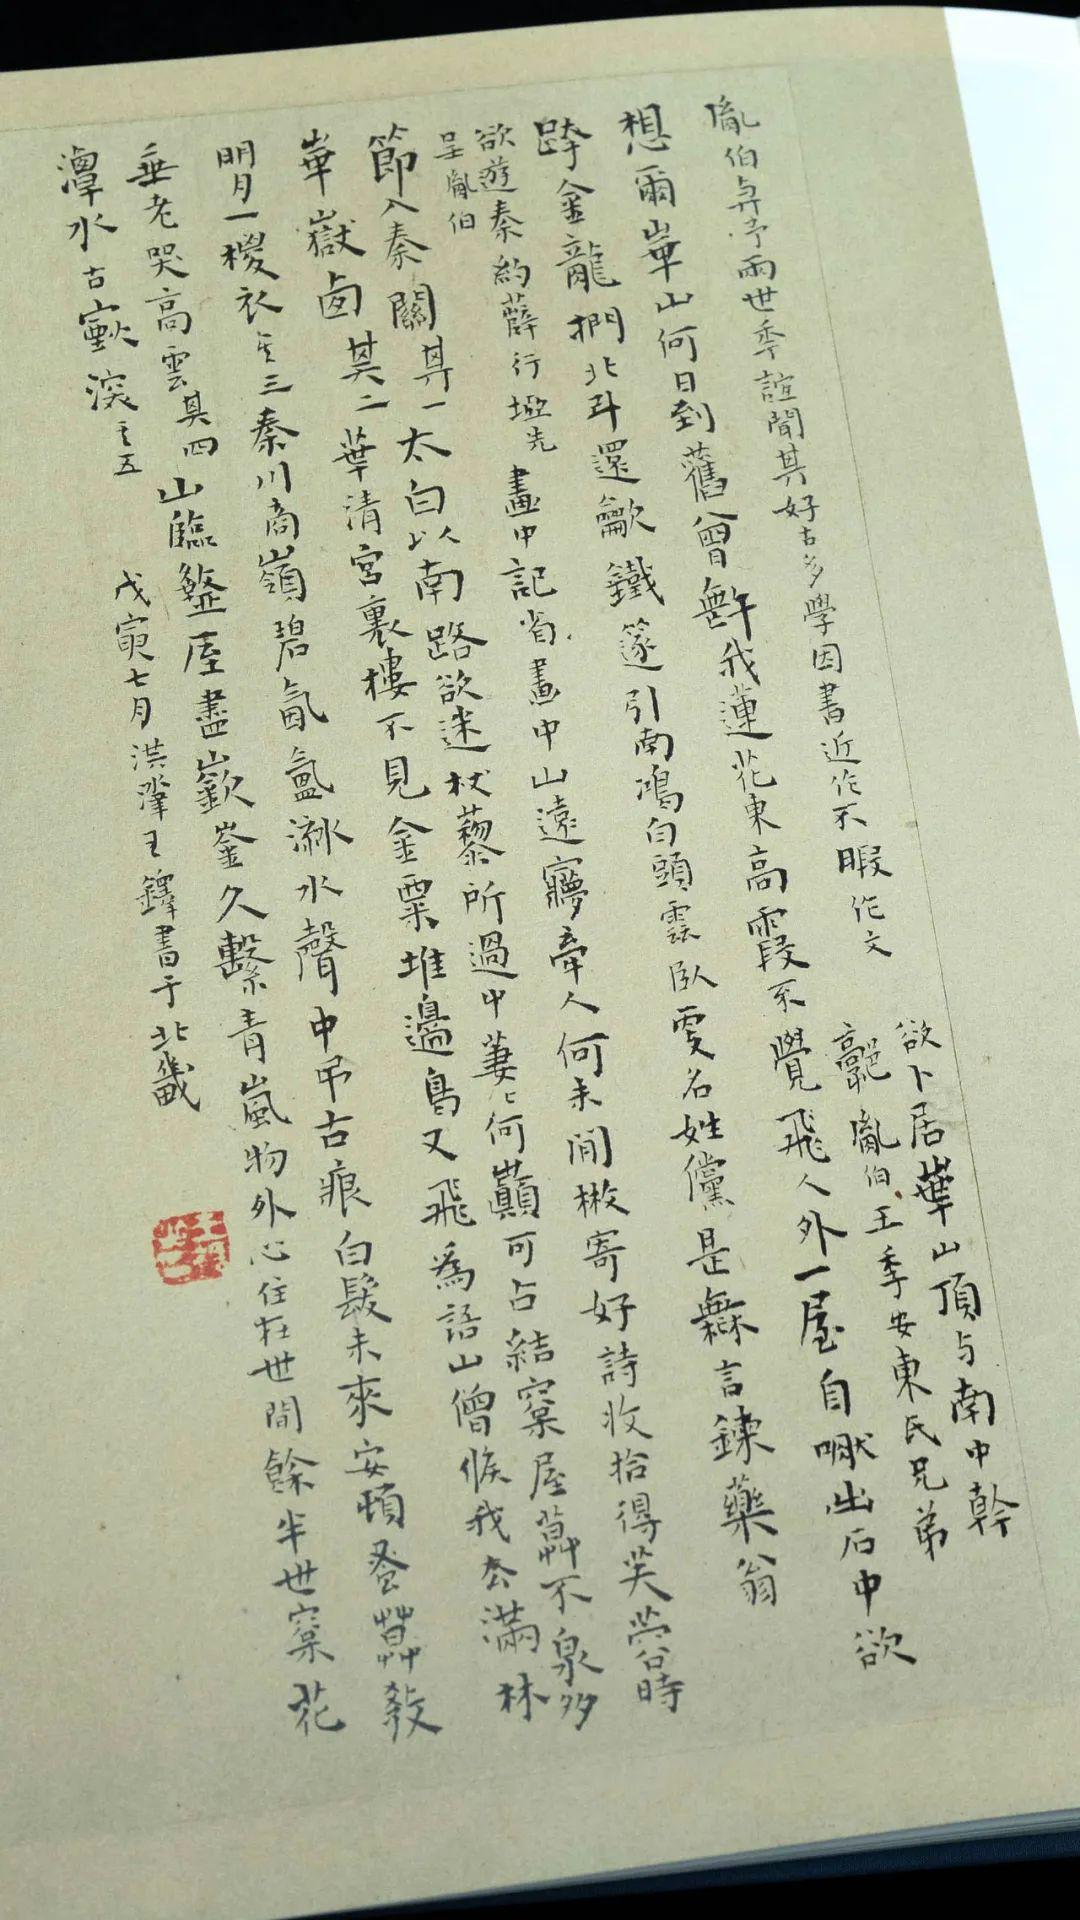 胤伯與予兩世季誼聞其好古多學因書近作不暇作文
欲卜居華山頂与南中幹
胤伯王季安東氏兄弟
想爾崋山何日到舊曾無我蓮花東高霞不覺飛人外一屋自出石中欲
跨金龍捫北斗還歙鐵篴引南鴻白頭雲臥更名姓儻是無言鍊藥翁
欲遊秦約薛行塢先
呈胤伯
畫中記省畫中山遠牽人何未閒楸寄好詩收拾得芙蓉時
節入秦關其一太白以南路欲迷杖藜所過中萋〻何巔可占結窠屋不泉多
崋嶽卤其二華清宮裏樓不見金粟堆邊鳥又飛為語山僧候我去滿林
明月一稷衣其三秦川商嶺碧氤氳水聲中弔古痕白髮未來安頓蚤教
垂老哭高雲其四山臨盩厔盡嶔崟久繫青嵐物外心住在世間餘半世窠花
潭水古深其五
戊寅七月洪澤王鐸書于北畿